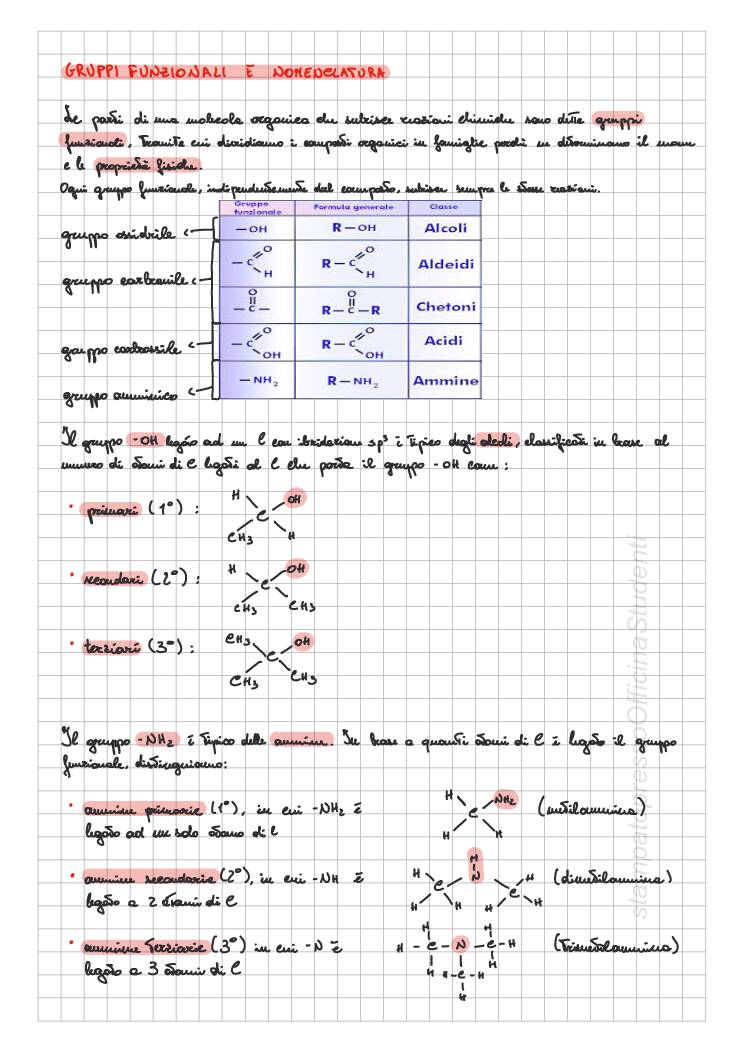 GRUPPI FUNZIONALI E NOMENCLATURA
Le parti di una molecola organica che subisce reazioni chimiche sono dette gruppi
funzionali, tramite cui dividiamo i composti organici in famiglie perché ne determinano il nome
e le proprietà fisiche.
Ogni gruppo funzionale, indipendentemente dal composto, subisce sempre le stesse reazioni.
Gruppo funzionale Formula generale Classe
gruppo ossidrile —OH R—OH Alcoli
gruppo carbonile —C O H R—C O H Aldeidi
O —C— O R—C—R Chetoni
gruppo carbossile —C O OH R—C O OH Acidi
gruppo amminico —NH₂ R—NH₂ Ammine
Il gruppo -OH legato ad un C con ibridazione sp³ è tipico degli alcoli, classificati in base al
numero di atomi di C legati al C che porta il gruppo -OH come :
• primari (1°) : H OH C CH₃ H
• secondari (2°) : H OH C CH₃ CH₃
• terziari (3°) : CH₃ OH C CH₃ CH₃
Il gruppo -NH₂ è tipico delle ammine. In base a quanti atomi di C è legato il gruppo
funzionale, distinguiamo:
• ammine primarie (1°), in cui -NH₂ è H NH₂ C H H (metilammina)
legato ad un solo atomo di C
• ammine secondarie (2°), in cui -NH è H H N H C C H H H H (dimetilammina)
legato a 2 atomi di C
• ammine terziarie (3°) in cui -N è H H H - C - N - C - H H H H - C - H H (trimetilammina)
legato a 3 atomi di C
stampato presso Officina Studenti